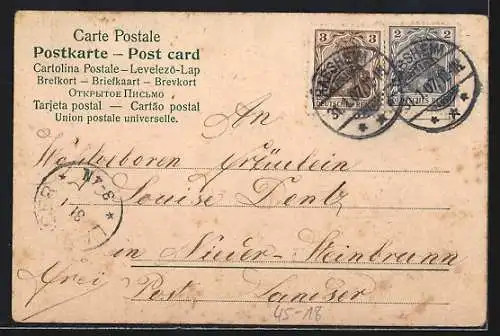 Carte Postale
Postkarte – Post card
Cartolina Postale – Levelező-Lap
Brefkort – Briefkaart – Brevkort
ОТКРЫТОЕ ПИСЬМО
Tarjeta postal – Cartão postal
Union postale universelle.
3 3
DEUTSCHES REICH
2 2
DEUTSCHES REICH
HABSHEIM
An
Fräulein
Louise Dentz
in Nieder-Steinbrunn
frei Post Landser
3-4N
31
45-18